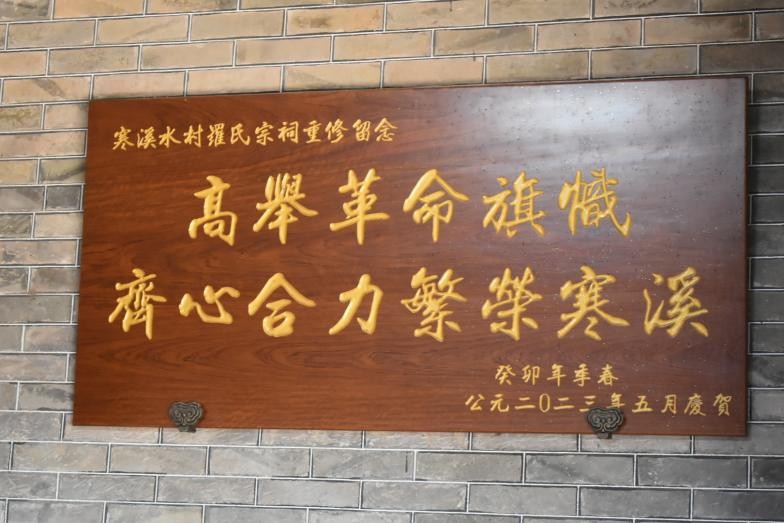 寒溪水村羅氏宗祠重修留念
高舉革命旗幟
齊心合力繁榮寒溪
癸卯年季春
公元二〇二三年五月慶賀